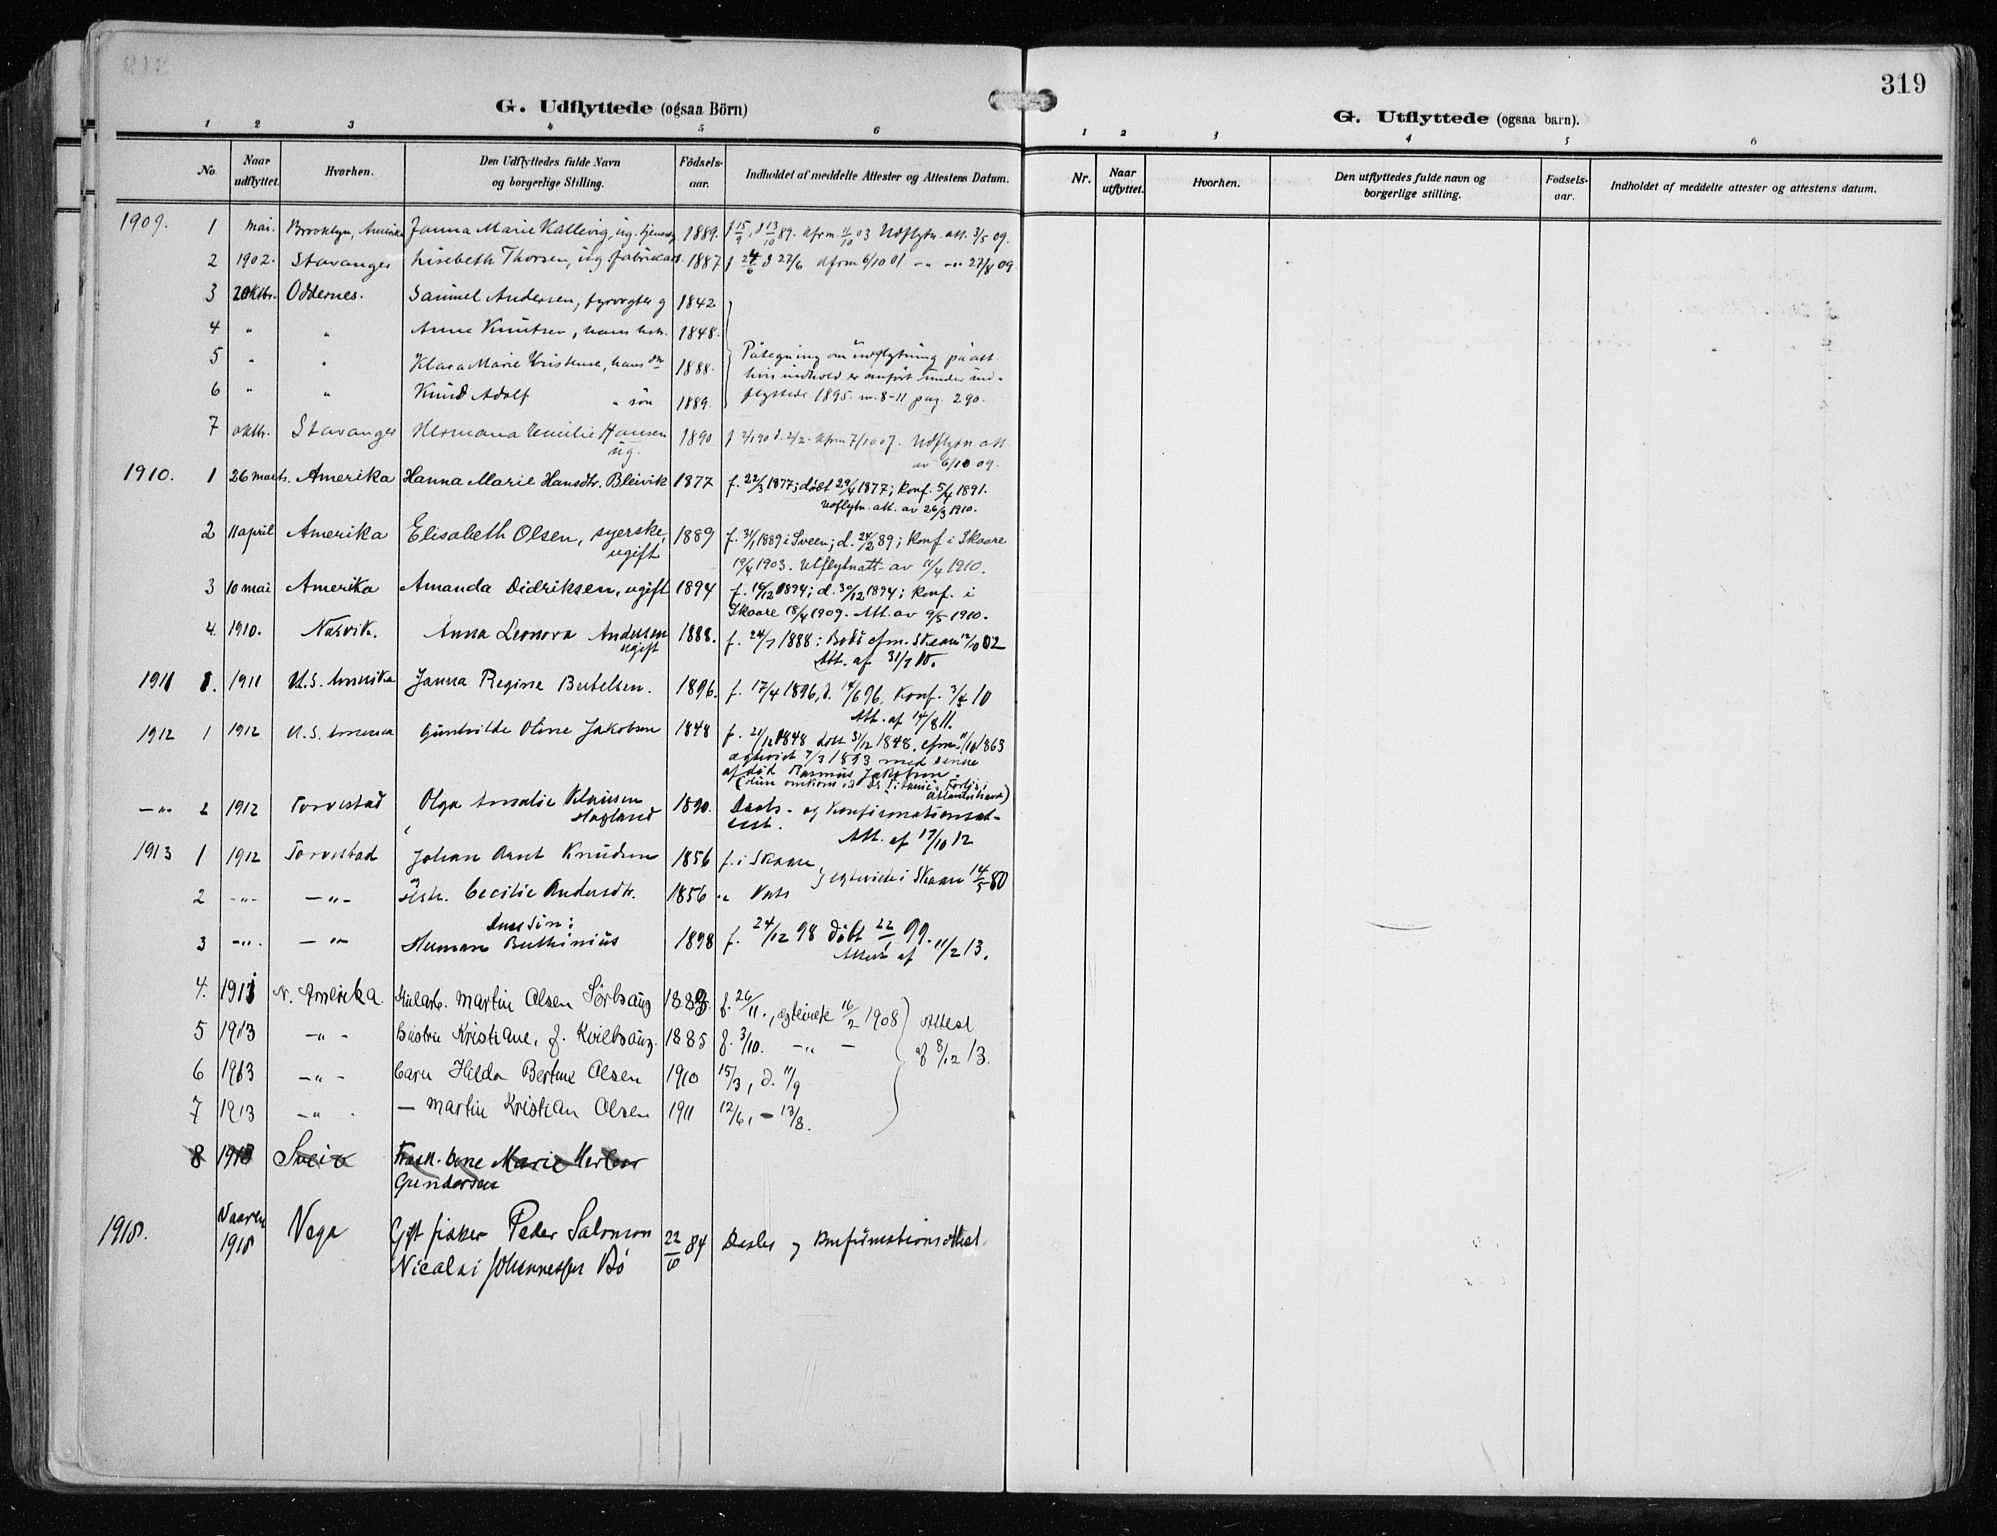 319
G. Udflyttede (ogsaa Börn)
1 2 3 4 5 6
No. Naar udflyttet. Hvorhen. Den Udflyttedes fulde Navn og borgerlige Stilling. Fødsels-aar. Indholdet af meddelte Attester og Attestens Datum.
1909. 1 mai. Brooklyn, Amerika Janna Marie Kallevig, ug. 1889. f 15/9, d 13/10 89. kfrm. 11/10 03 Udflytn. att. 3/5 09.
2 1902. Stavanger Lisebeth Thorsen, ug. 1887 f 24/6 d 27/6 kfrm 6/10 01 — " — 27/8 09.
3 Oktbr. Oddernes. Samuel Andersen, fyrvogter g 1842
4 " " Anne Knutsen, hans hstr. 1848.
5 " " Klara Marie Kristense, hans dtr 1888. Påtegning om udflytning på att.
hvis indhold er anført under ind-
6 " " Knud Adolf " søn 1889. flyttede 1895 nr. 8-11 pag. 290.
7 oktbr. Stavanger Hermana Emilie Hansen 1890 f 2/1 90 d. 2/2. kfrm 7/10 07. Udflytn. att.
ug. av 6/10 09.
1910. 1 26 marts. Amerika Hanna Marie Hansdtr. Bleivik 1877 f. 22/3 1877; døbt 29/4 1877; konf. 5/4 1891.
Udflytn. att. av 26/3 1910.
2 11 april Amerika Elisabeth Olsen, syerske, 1889 f. 31/1 1889 i Sveen; d. 24/2 89; konf i Skaare
ugift 19/4 1903. Utflytn att. av 11/4 1910.
3 10 mai Amerika Amanda Didriksen, ugift 1894 f. 10/12 1894; d. 30/12 1894; konf. i
Skaare 18/4 1909. Att. av 9/5 1910.
4. 1910. Narvik. Anna Leonora Andersen 1888. f. 24/7 1888: Bodö cfm. Skaare 12/10 02
ugift Att. af 31/7 10.
1911 1. 1911 U.S. Amerika Janna Regine Bertelsen. 1896. f. 17/4 1896, d. 14/6 96, Konf. 3/4 10
Att. af 14/8 11.
1912 1 1912 U.S. America Gunhilde Oline Jakobsen 1848 f. 21/12 1848 døbt 31/12 1848. cfm. 11/10 1863
egteviet 7/3 1873 med
Rasmus Jakobsen.
— " — 2 1912 Torvestad Olga Amalie Klausen 1890. Daabs- og Konfirmationsat-
test. Att. af 17/10 12
1913 1 1912 Torvestad Johan Arnt Knudsen 1856 f. i Skaare
egteviede i Skaare 14/5 80
2 — " — — " — Hstr. Cecilie Andersdtr. 1856 " Vats
3 — " — — " — Deres Sön: Herman Berthinius 1898 f. 24/12 98 döbt 22/1 99.
Attest af 11/2 13.
4. 1913 N. Amerika. Martin Olsen Sørhaug 1883. f. 26/11., egteviede 16/2 1908 Attest
5 1913 — " — Hustru Kristiane, f. Kvilhaug. 1885 f. 3/10. — " — af 8/12 13.
6 1913 — " — Barn Hilda Bertine Olsen 1910 15/3, d. 11/9
7 1913 — " — — Martin Kristian Olsen 1911 12/6, — 13/8.
8 1913 Sveio Marie
Gundersen
1918. Vaaren 1918 Vega Gift fisker Peder Salomon 22/6 84 Daabs og Konfirmationsattest.
Nicolai Johannessen Bö
G. Utflyttede (ogsaa barn).
1 2 3 4 5 6
Nr. Naar utflyttet. Hvorhen. Den utflyttedes fulde navn og borgerlige stilling. Fødsels-aar. Indholdet af meddelte attester og attestens datum.